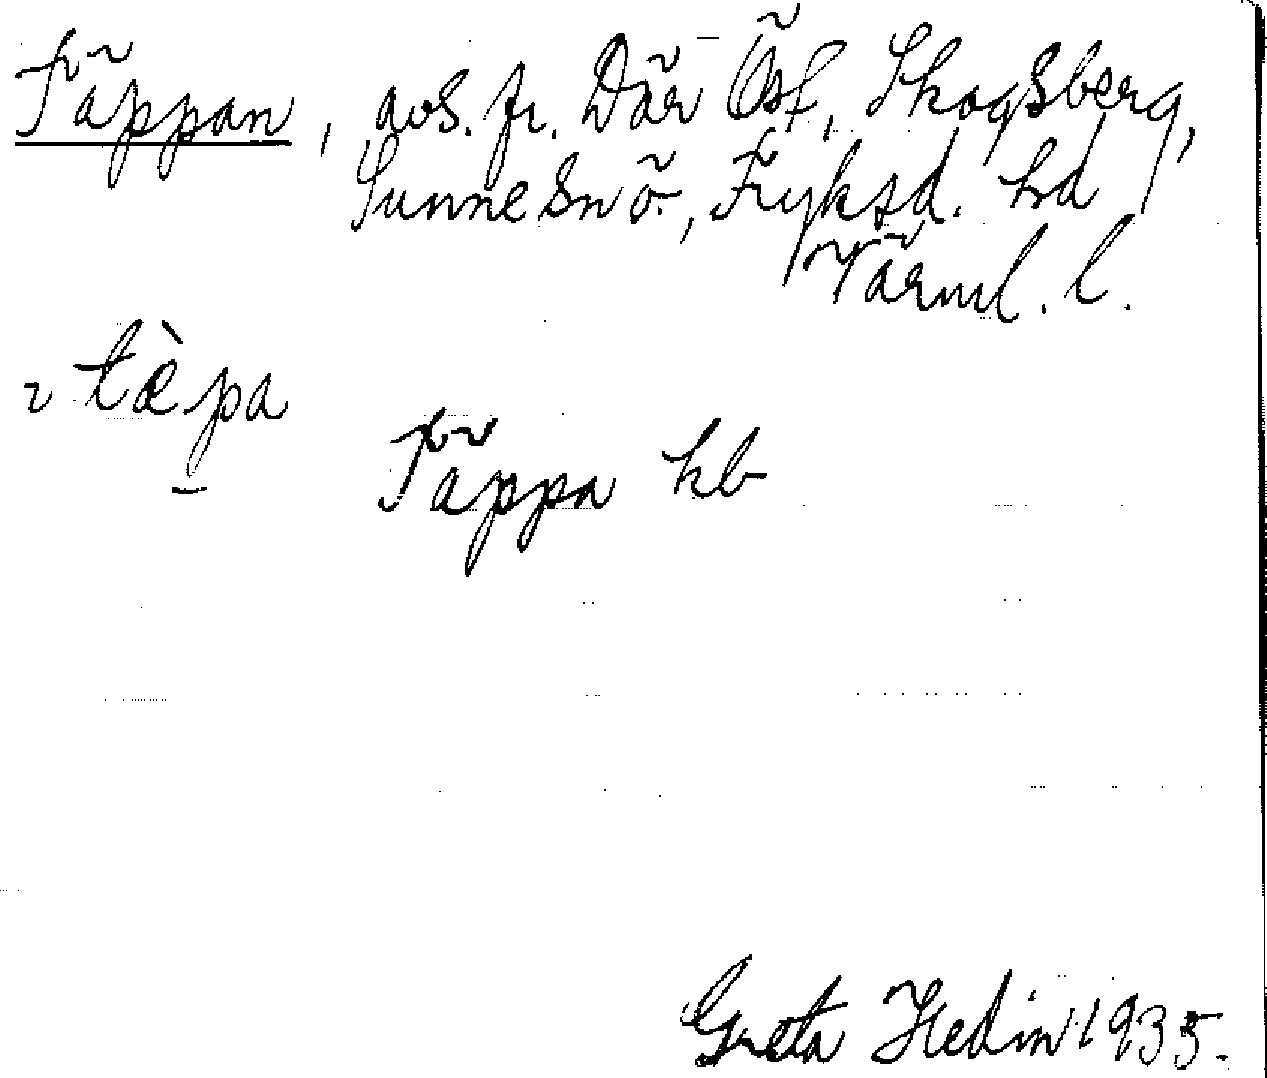 Täppan, avs. fr. Där Öst, Skogsberg,
Sunne sn ö., Fryksd. hd
Värml. l.
2 tæ̀pa
Täppa hb
Greta Hedin 1935.